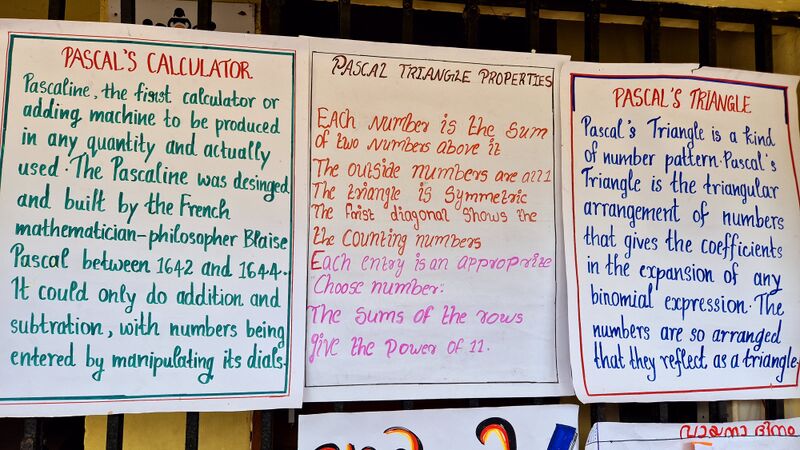 PASCAL'S CALCULATOR
Pascaline, the first calculator or
adding machine to be produced
in any quantity and actually
used. The Pascaline was desinged
and built by the French
mathematician-philosopher Blaise
Pascal between 1642 and 1644.
It could only do addition and
subtration, with numbers being
entered by manipulating its dials.
PASCAL TRIANGLE PROPERTIES
EACH Number is the sum
of two numbers above it
The outside numbers are all 1
The triangle is symmetric
The first diagonal shows the
the counting numbers
Each entry is an approprize
Choose number.
The sums of the rows
give the power of 11.
PASCAL'S TRIANGLE
Pascal's Triangle is a kind
of number pattern. Pascal's
Triangle is the triangular
arrangement of numbers
that gives the coefficients
in the expansion of any
binomial expression. The
numbers are so arranged
that they reflect as a triangle
വായനാ ദിനം